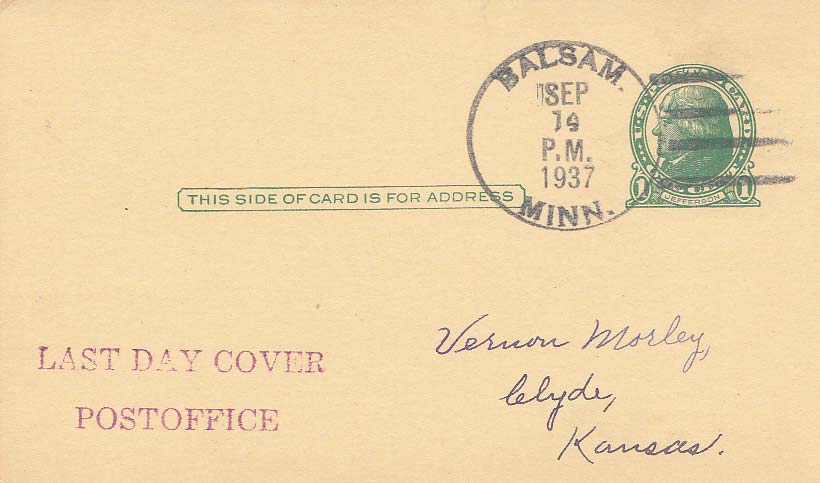 BALSAM.
SEP
14
P.M.
1937
MINN.
U.S. POSTAL CARD
1 1
JEFFERSON
THIS SIDE OF CARD IS FOR ADDRESS
LAST DAY COVER
POSTOFFICE
Vernon Morley,
Clyde,
Kansas.